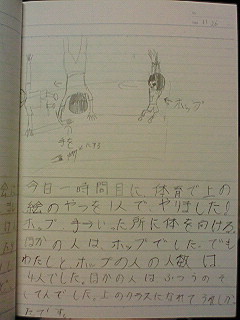 ホップ
手を
今日一時間目に、体育で上の
絵のやつを1人でやりました!
ホップ、手ついた所に体を向ける。
ほかの人は、ホップでした。でも
わたしと、ホップの人の人数は
4人でした。ほかの人は、ふつうのそ
くてんでした。上のクラスになれてうれしかっ
たです。